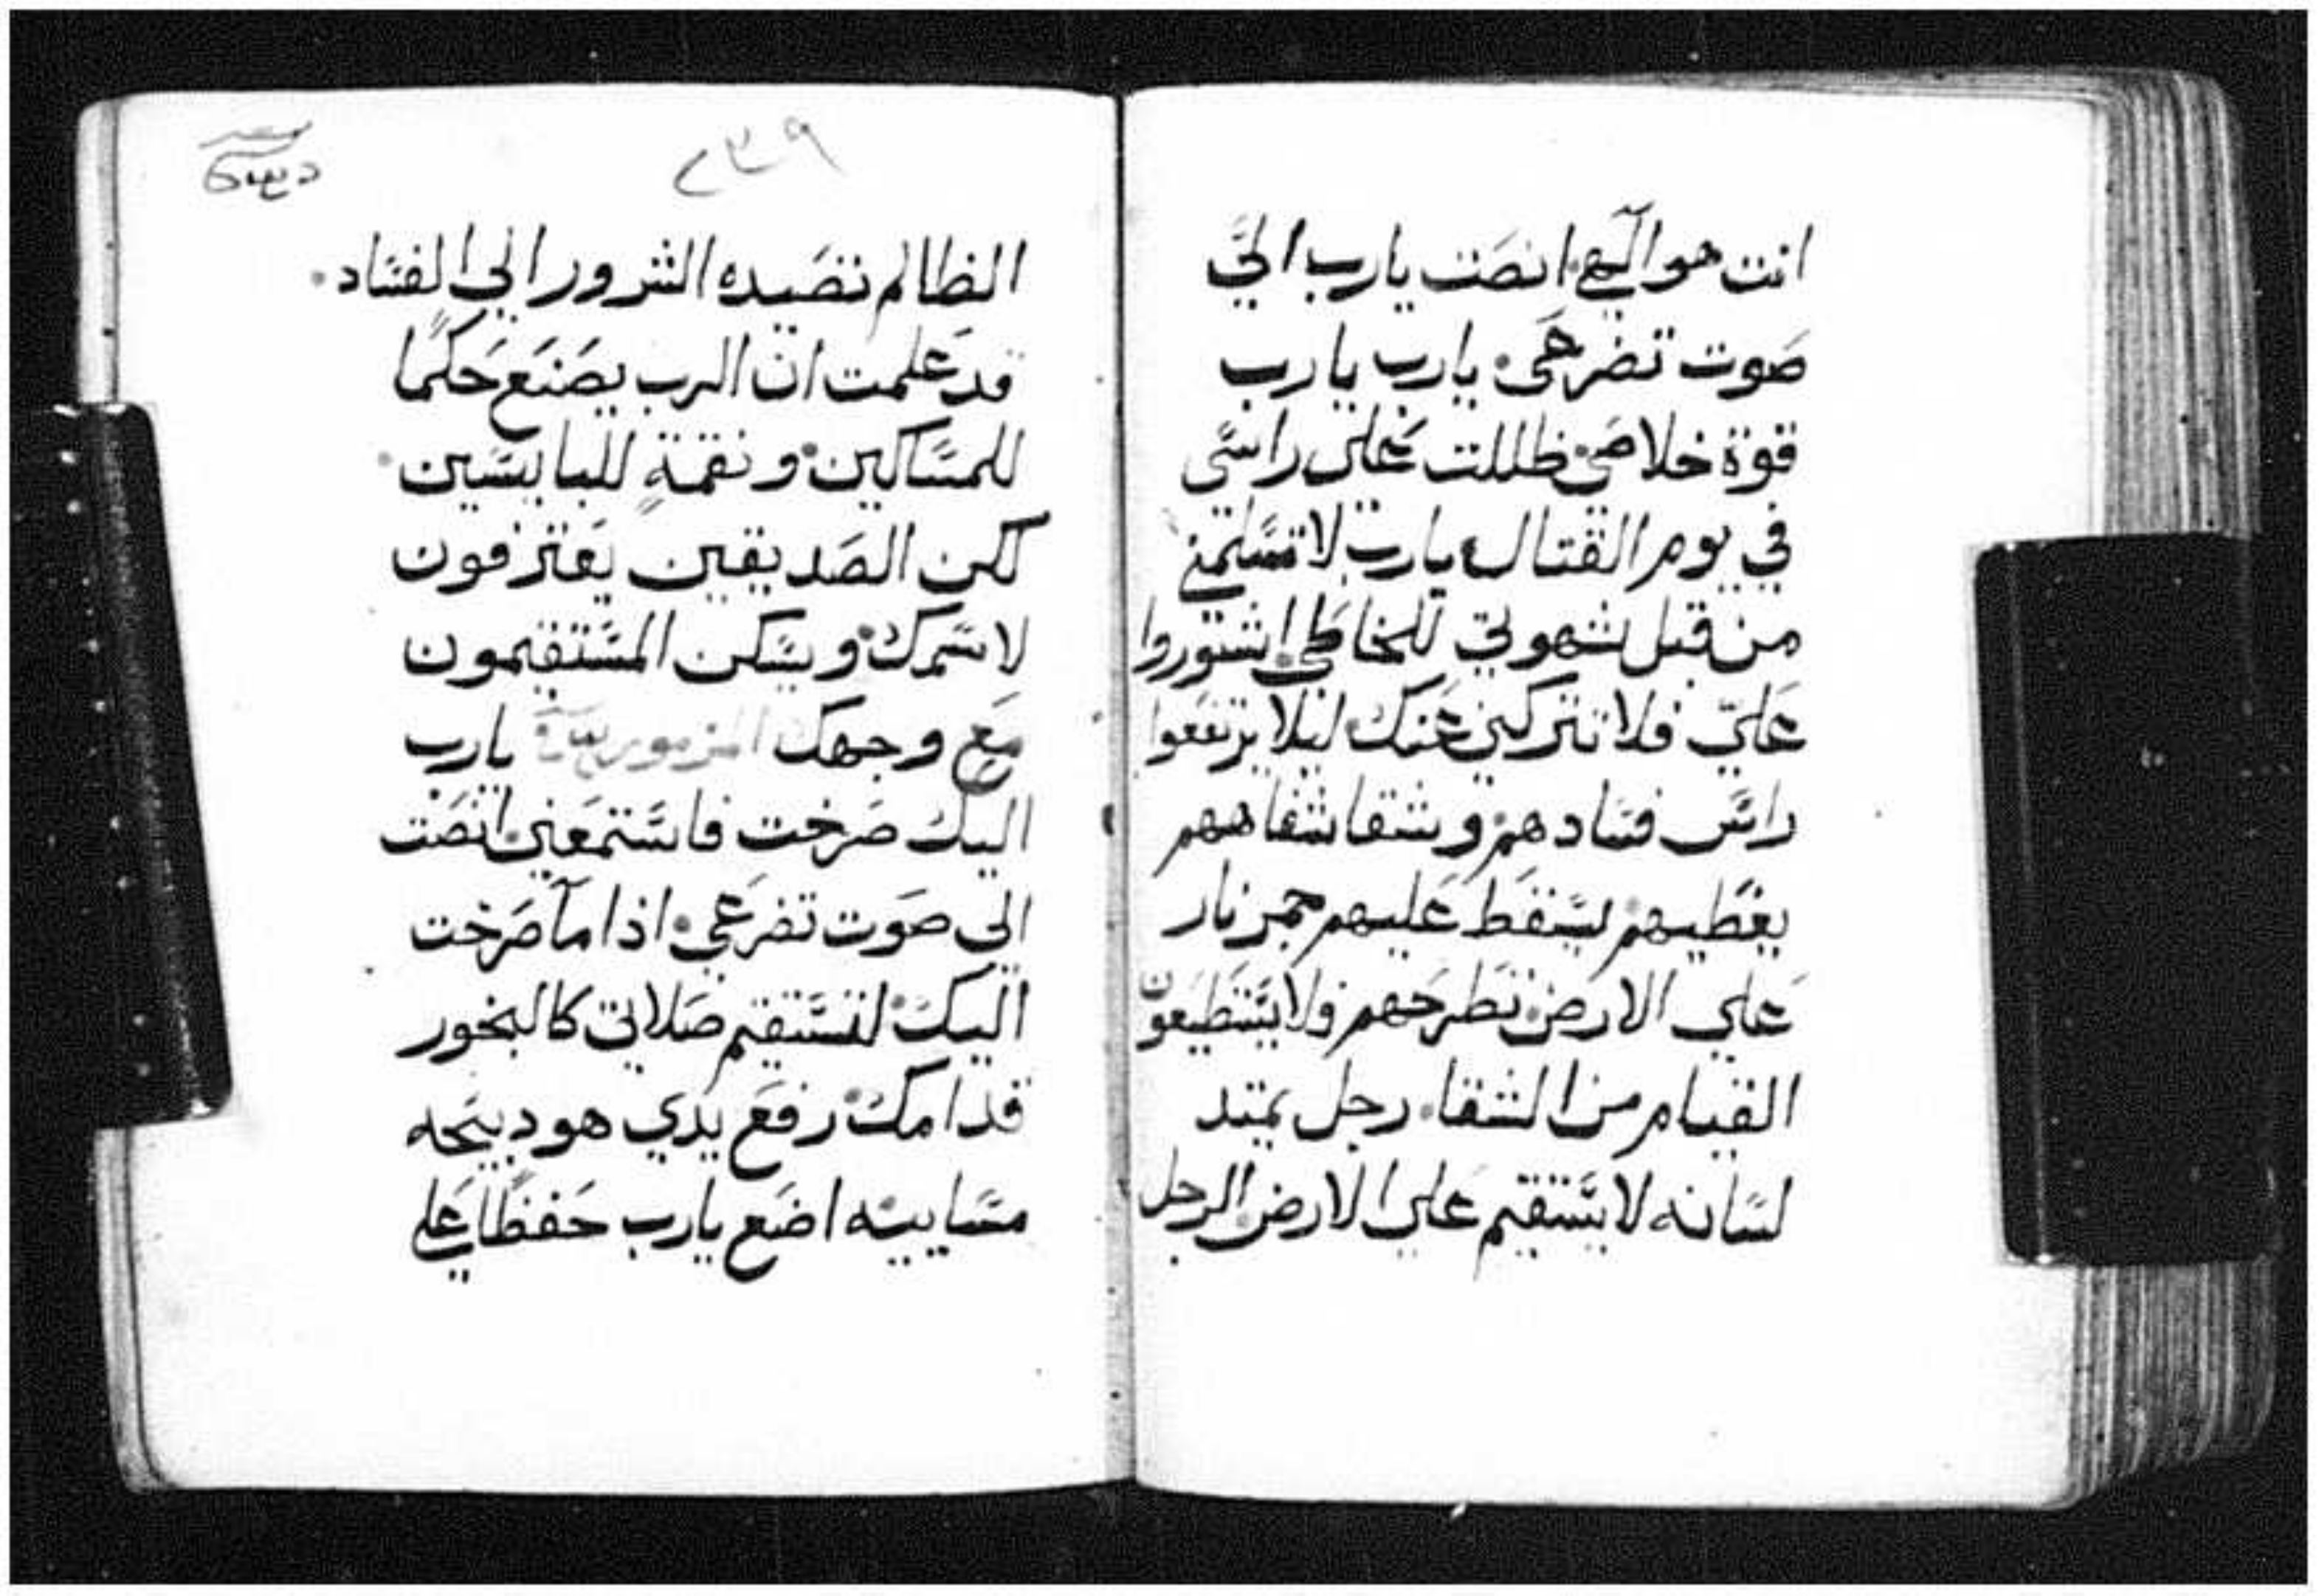 انت هو الٓهي انصَت يارب اليَّ
صَوت تضرعَي يارب يارب
قوة خلاصَي ظللت عَلي راسَي
في يوم القتال يارب لا تسَلمني
من قبل شهوتي للخاطَي اشتوروا
عَليّ فلا تتركني عَنك ليلا يرتفعَوا
راسَ فسَادهم وشقا شفاههم
يغطَيهم يسَقط عَليهم جمر نار
عَلي الارضَ تطرحَهم ولا يسَتطَيعَون
القيام من الشقا رجل يمتد
لسَانه لا يسَتقيم عَلي الارض الرجل
٢٣٩
الظالم تصَيده الشرور الي الفسَاد
قد عَلمت ان الرب يصَنَع حَكمًا
للمسَاكين ونقمةٍ للبايسَين
لكن الصَديقين يعَترفون
لاسَمك ويسَكن المسَتقيمون
مَع وجهك المزمور يارب
اليك صَرخت فاسَتمعَني انصَت
الي صَوت تضرعَي اذا مآ صَرخت
اليك لتسَتقيم صَلاتي كالبخور
قدامك رفعَ يدي هو دبيحَه
مسَاييه اضَع يارب حَفظًا عَلي